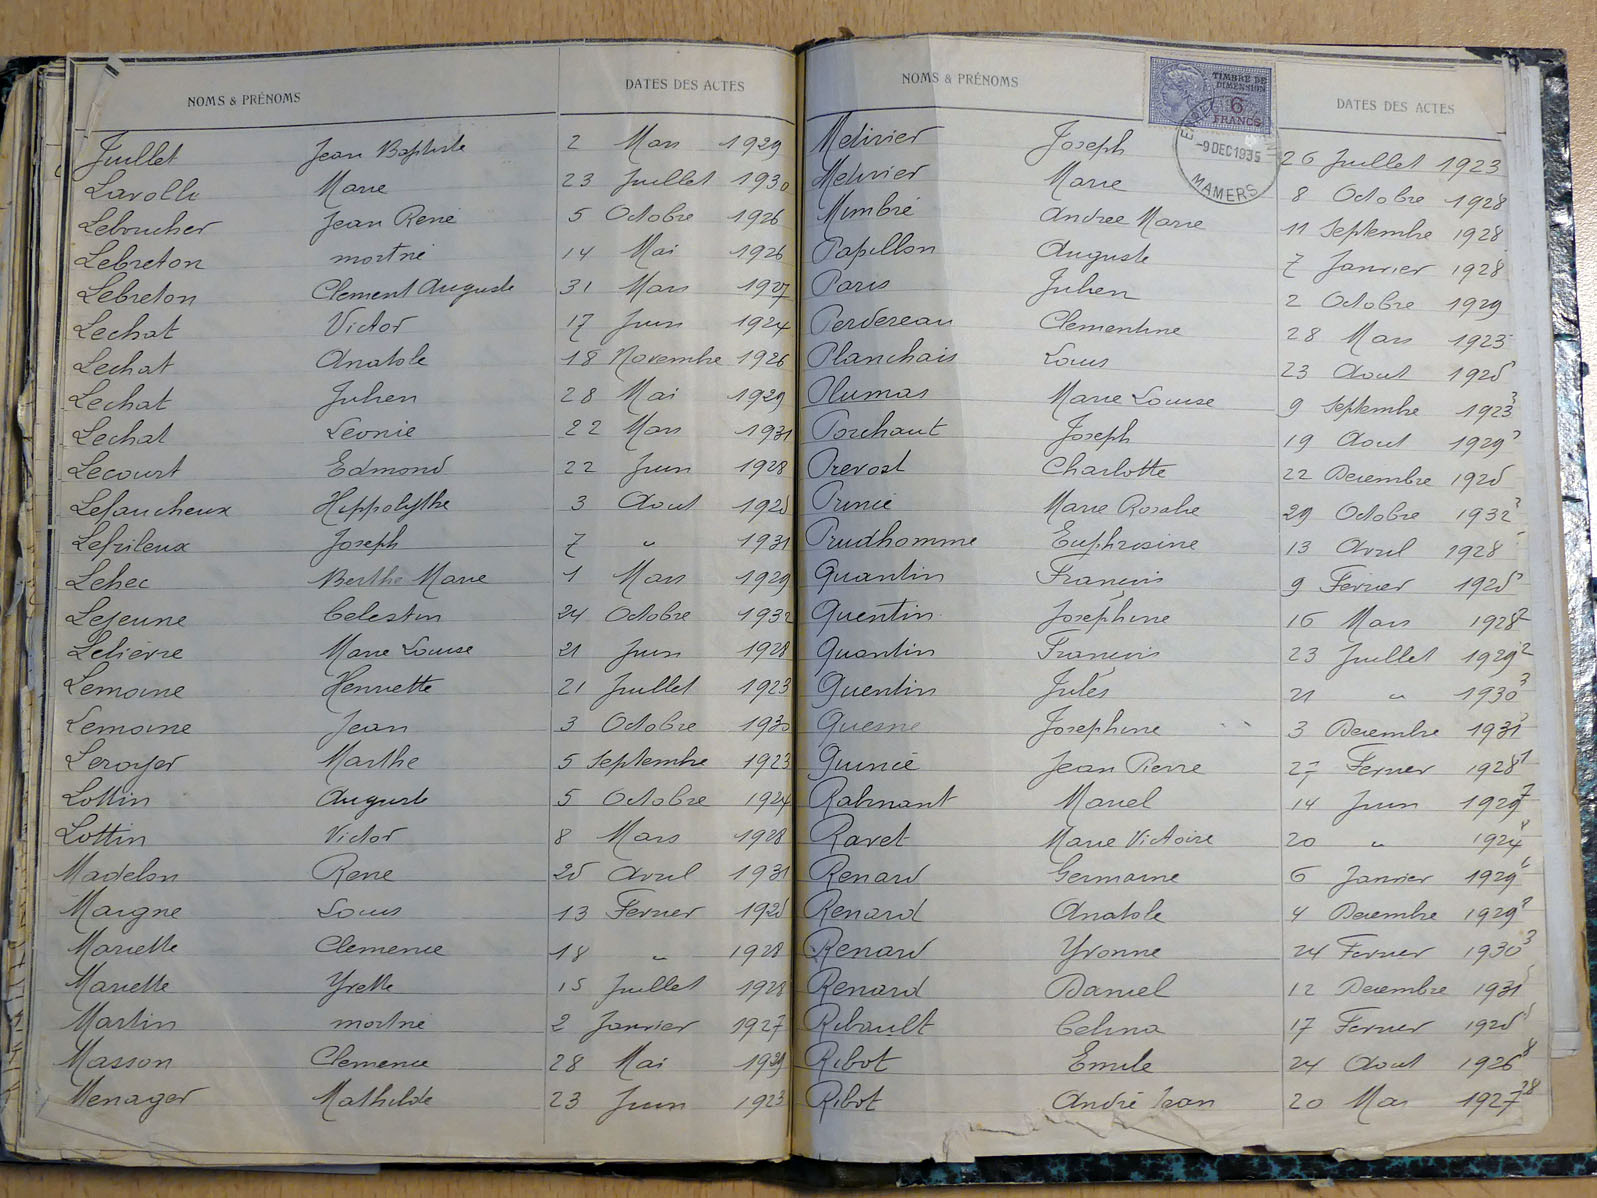 NOMS & PRÉNOMS DATES DES ACTES
Juillet Jean Baptiste 2 Mars 1929
Lavollé Marie 23 Juillet 1930
Leboucher Jean René 5 Octobre 1926
Lebreton mort né 14 Mai 1926
Lebreton Clement Auguste 31 Mars 1927
Lechat Victor 17 Juin 1924
Lechat Anatole 18 Novembre 1926
Lechat Julien 28 Mai 1929
Lechat Leonie 22 Mars 1931
Lecourt Edmond 22 Juin 1928
Lefaucheux Hippolythe 3 Aout 1925
Lefrileux Joseph 7 " 1931
Lehec Berthe Marie 1 Mars 1929
Lejeune Celestin 24 Octobre 1932
Lelièvre Marie Louise 21 Juin 1928
Lemoine Henriette 21 Juillet 1923
Lemoine Jean 3 Octobre 1930
Leroyer Marthe 5 Septembre 1923
Lottin Auguste 5 Octobre 1924
Lottin Victor 8 Mars 1928
Madelon René 25 Avril 1931
Maigne Louis 13 Fevrier 1925
Mariette Clemence 18 " 1928
Mariette Yvette 15 Juillet 1928
Martin mort né 2 Janvier 1927
Masson Clemence 28 Mai
Menager Mathilde 23 Juin 1923
NOMS & PRÉNOMS DATES DES ACTES
TIMBRE DE
DIMENSION
6
FRANCS
-9 DEC 1935
MAMERS
Metivier Joseph 26 Juillet 1923
Metivier Marie 8 Octobre 1928
Mimbré Andree Marie 11 Septembre 1928
Papillon Auguste 7 Janvier 1928
Paris Julien 2 Octobre 1929
Perdereau Clementine 28 Mars 1923
Planchais Louis 23 Aout 1925
Plumas Marie Louise 9 Septembre 1923
Porchaut Joseph 19 Aout 1929
Prevost Charlotte 22 Decembre 1925
Prunié Marie Rosalie 29 Octobre 1932
Prudhomme Euphrosine 13 Avril 1928
Quantin François 9 Fevrier 1925
Quentin Joséphine 16 Mars 1928
Quantin François 23 Juillet 1929
Quentin Jules 21 " 1930
Quesne Josephine 3 Decembre 1931
Guinié Jean Pierre 27 Fevrier 1928
Rahnant Marcel 14 Juin 1929
Ravet Marie Victoire 20 " 1924
Renard Germaine 6 Janvier 1929
Renard Anatole 4 Decembre 1929
Renard Yvonne 24 Fevrier 1930
Renard Daniel 12 Decembre 1931
Ribault Celina 17 Fevrier 1925
Ribot Emile 24 Aout 1926
Ribot André Jean 20 Mai 1927